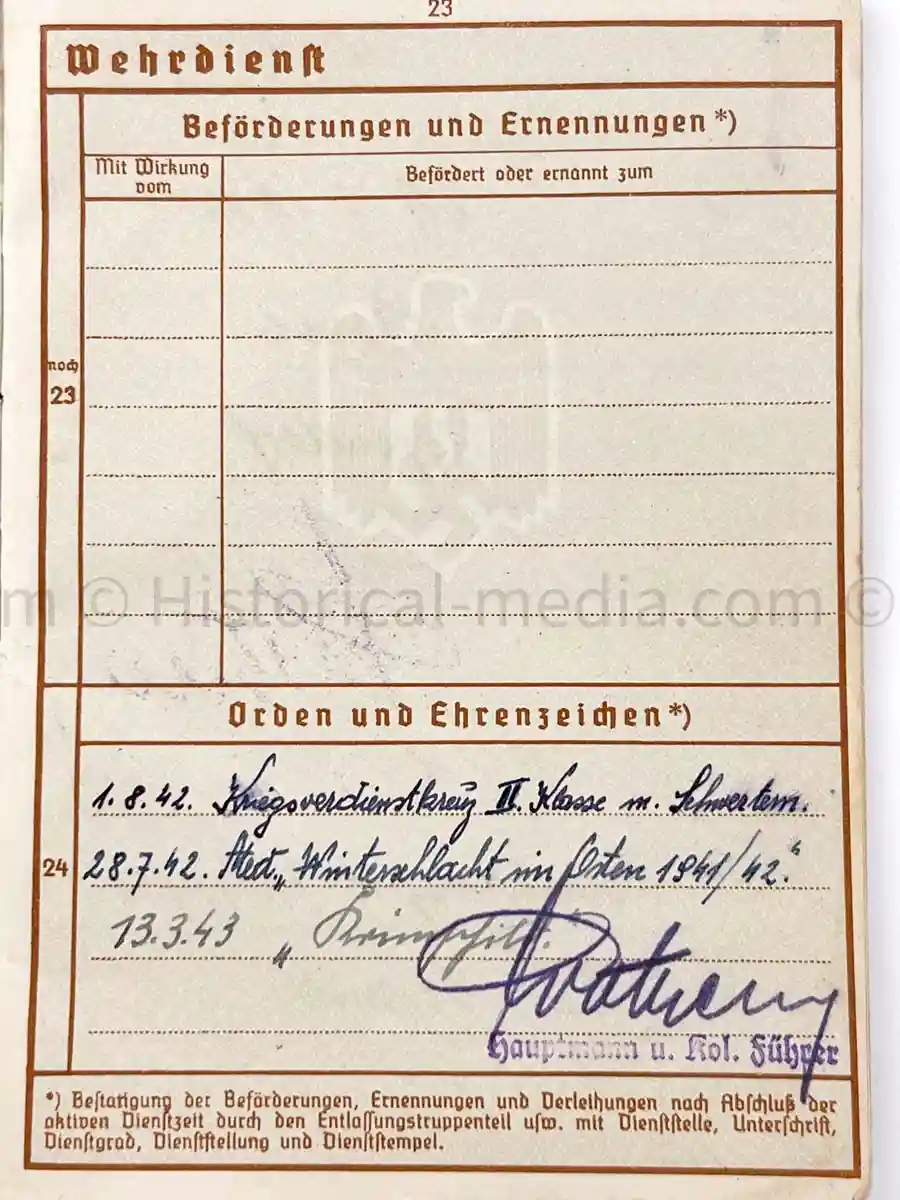 23
Wehrdienst
Beförderungen und Ernennungen *)
Mit Wirkung
vom
Befördert oder ernannt zum
noch
23
m © Historical-media.com ©
Orden und Ehrenzeichen *)
24
1. 8. 42. Kriegsverdienstkreuz II. Klasse m. Schwertern.
28.7.42. Med. „Winterschlacht im Osten 1941/42."
13.3.43 „Krimschild."
Hauptmann u. Kol. Führer
*) Bestätigung der Beförderungen, Ernennungen und Verleihungen nach Abschluß der
aktiven Dienstzeit durch den Entlassungstruppenteil usw. mit Dienststelle, Unterschrift,
Dienstgrad, Dienststellung und Dienststempel.